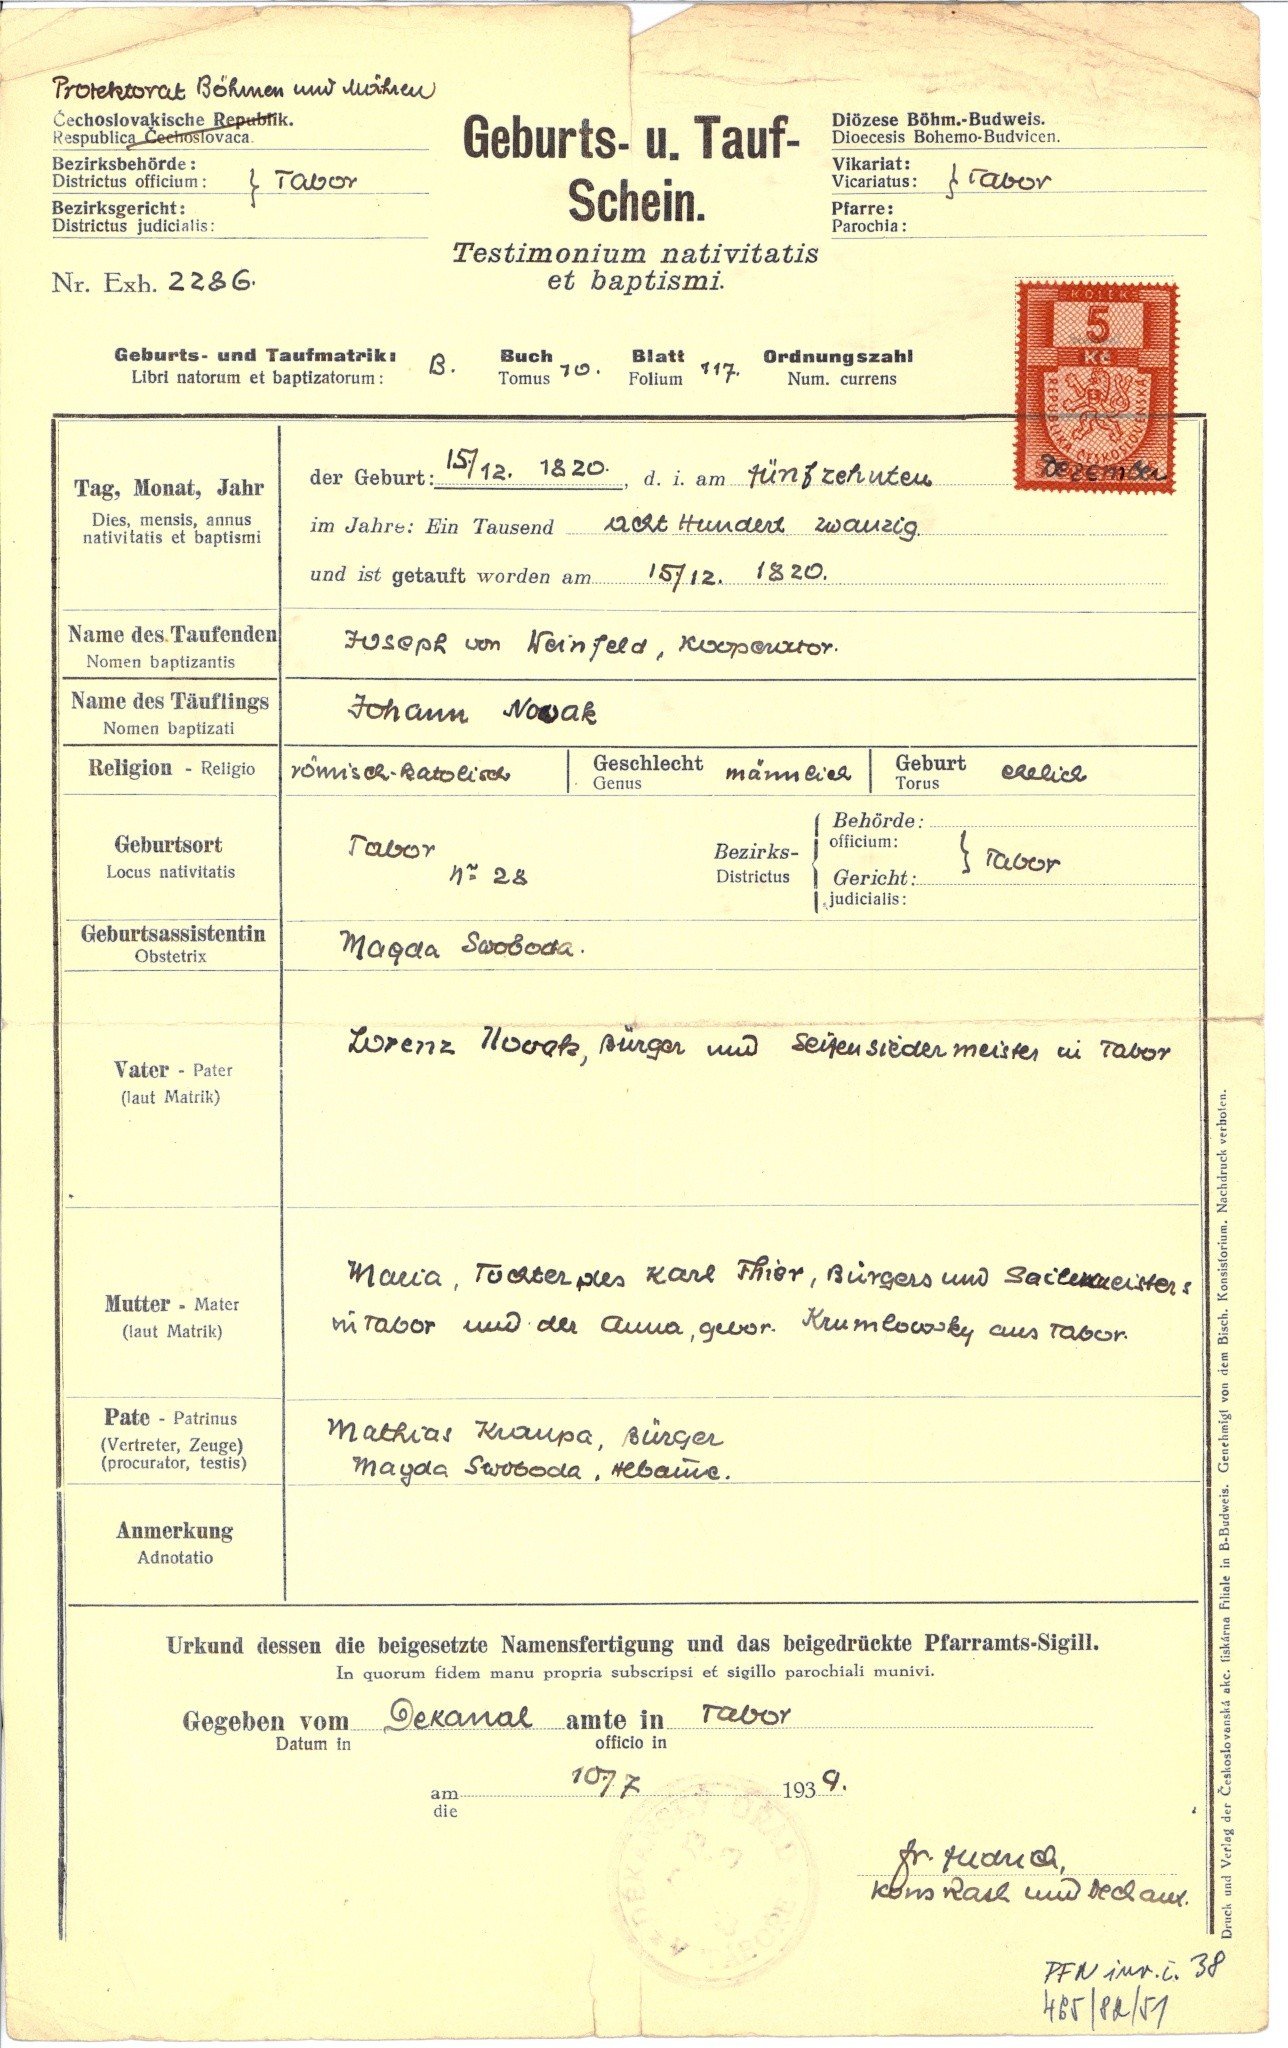 Protektorat Böhmen und Mähren
Čechoslovakische Republik.
Respublica Čechoslovaca.
Bezirksbehörde:
Districtus officium: } Tabor
Bezirksgericht:
Districtus judicialis:
Nr. Exh. 2286.
Geburts- u. Tauf-
Schein.
Testimonium nativitatis
et baptismi.
Diözese Böhm.-Budweis.
Dioecesis Bohemo-Budvicen.
Vikariat:
Vicariatus: } Tabor
Pfarre:
Parochia:
KOLEK
5
Kč
REPUBLIKA ČESKOSLOVENSKÁ
Geburts- und Taufmatrik: B. Buch 10. Blatt 117. Ordnungszahl
Libri natorum et baptizatorum: Tomus Folium Num. currens
Tag, Monat, Jahr
Dies, mensis, annus
nativitatis et baptismi
der Geburt: 15/12. 1820., d. i. am fünfzehnten Dezember
im Jahre: Ein Tausend acht Hundert zwanzig
und ist getauft worden am 15/12. 1820.
Name des Taufenden
Nomen baptizantis
Joseph von Weinfeld, Kooperator.
Name des Täuflings
Nomen baptizati
Johann Novak
Religion - Religio römisch-katolisch Geschlecht männlich Geburt ehelich
Genus Torus
Geburtsort
Locus nativitatis
Tabor
Nr 28
Bezirks-
Districtus
Behörde:
officium:
Gericht:
judicialis:
} Tabor
Geburtsassistentin
Obstetrix
Magda Swoboda.
Vater - Pater
(laut Matrik)
Lorenz Novak, Bürger und Seifensiedermeister in Tabor
Mutter - Mater
(laut Matrik)
Maria, Tochter des Karl Thier, Bürgers und Seilermeisters
in Tabor und der Anna, gebor. Krumlowsky aus Tabor.
Pate - Patrinus
(Vertreter, Zeuge)
(procurator, testis)
Mathias Kraupa, Bürger
Magda Swoboda,
Anmerkung
Adnotatio
Urkund dessen die beigesetzte Namensfertigung und das beigedrückte Pfarramts-Sigill.
In quorum fidem manu propria subscripsi et sigillo parochiali munivi.
Gegeben vom Dekanal amte in Tabor
Datum in officio in
am 10/7 1939.
die
Fr.
Kons Rath und Dechant.
PFN inv. č. 38
465/82/51
Druck und Verlag der Československá akc. tiskárna Filiale in B-Budweis. Genehmigt von dem Bisch. Konsistorium. Nachdruck verboten.